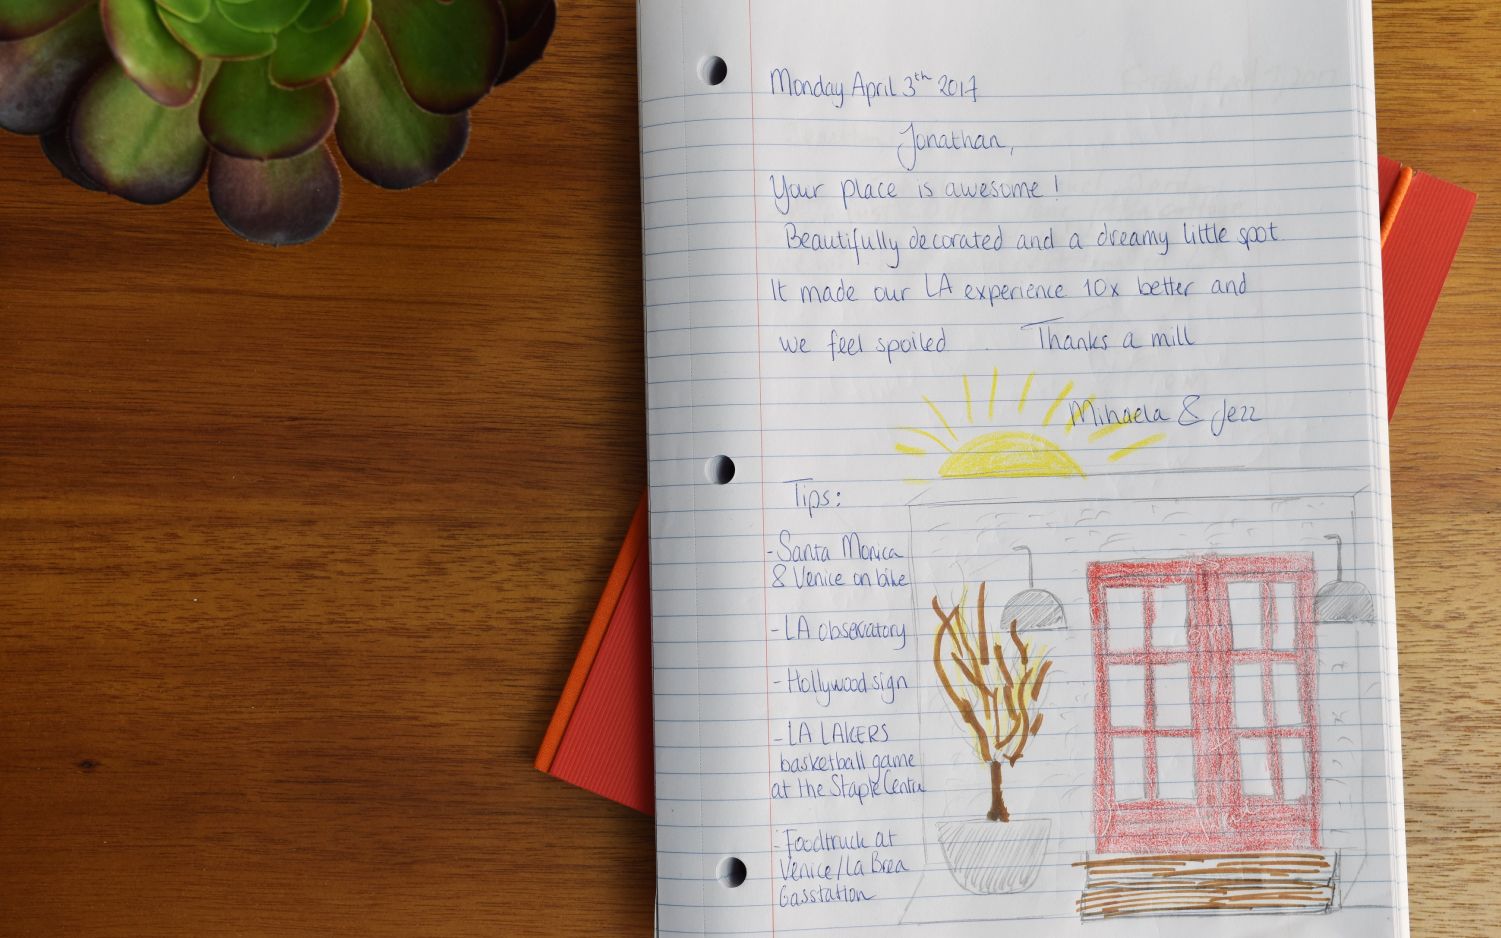 Monday April 3th 2017
Jonathan,
Your place is awesome !
Beautifully decorated and a dreamy little spot
It made our LA experience 10x better and
we feel spoiled . Thanks a mill
Mihaela & Jezz
Tips:
- Santa Monica
& Venice on bike
- LA observatory
- Hollywood sign
- LA LAKERS
basketball game
at the Staple Centre
- Foodtruck at
Venice/La Brea
Gasstation